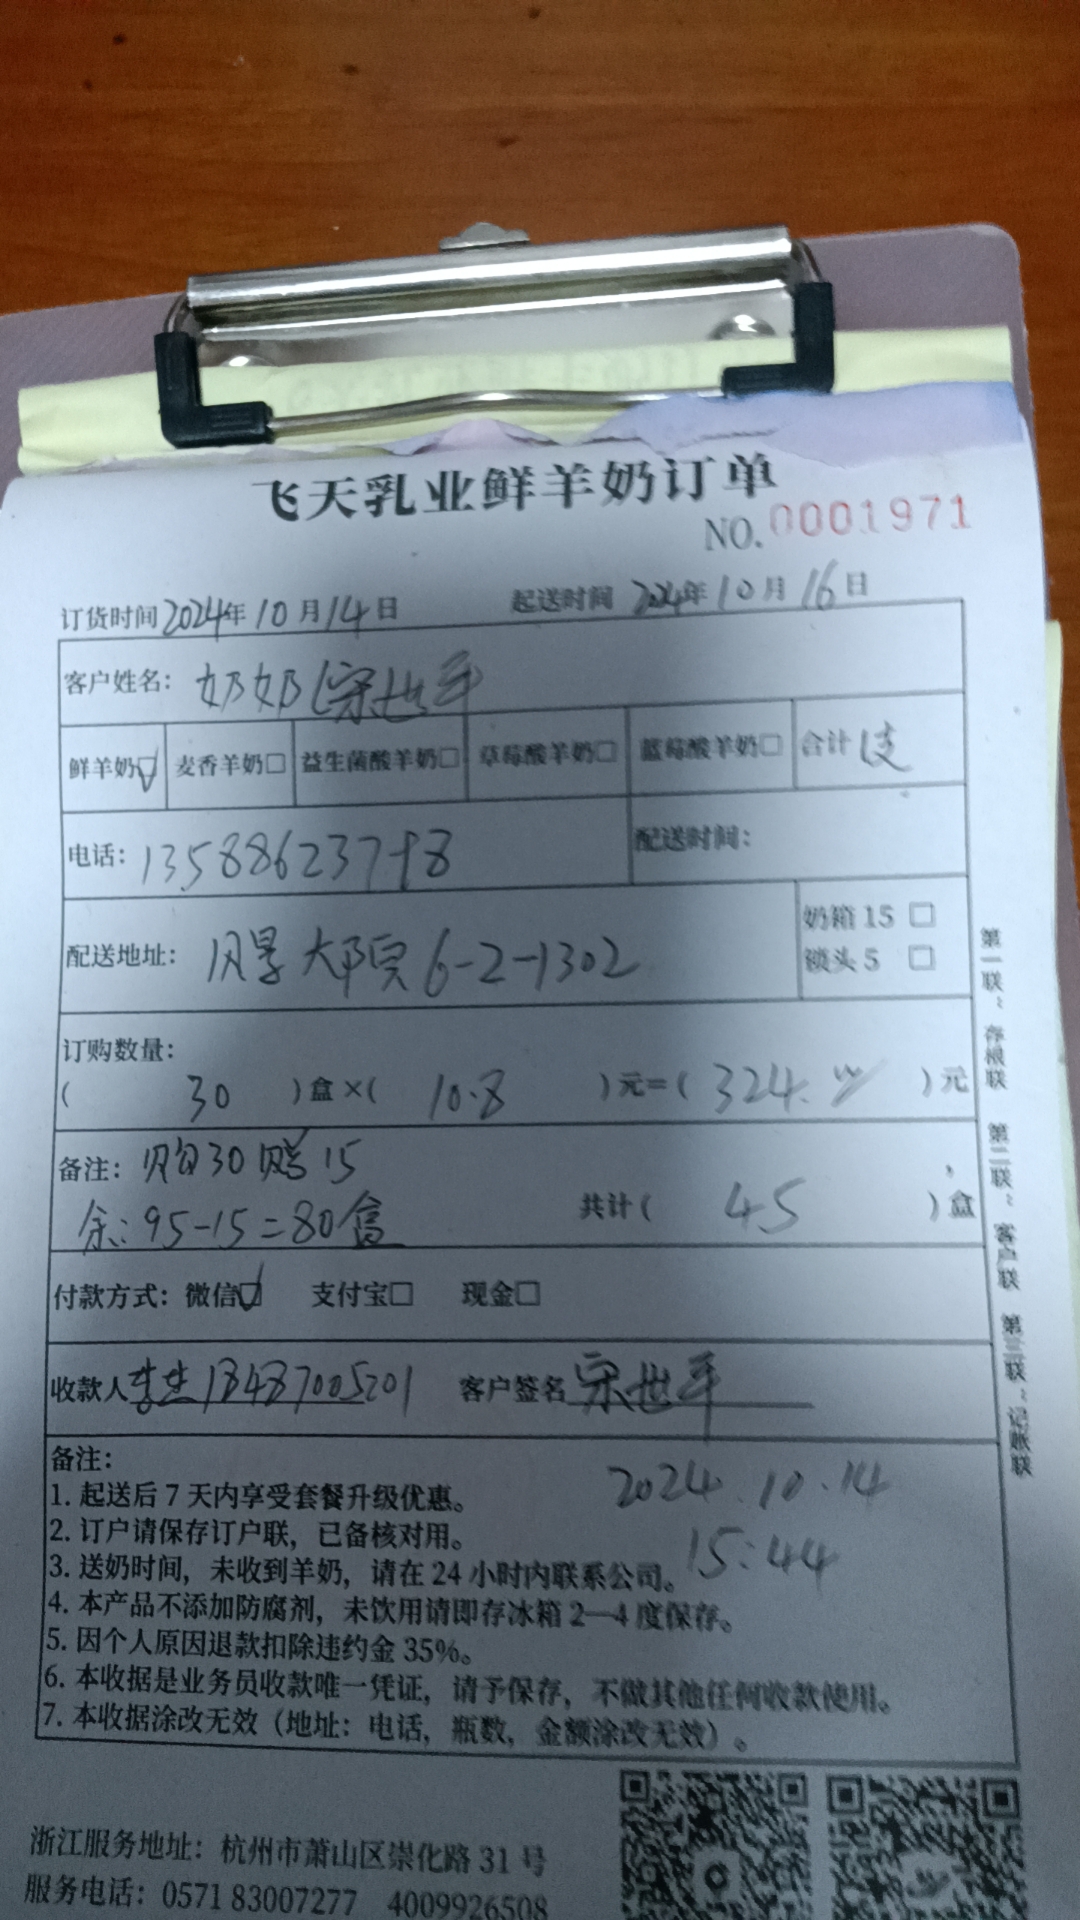 飞天乳业鲜羊奶订单
NO.0001971
订货时间 2024年 10 月 14 日 起送时间 2024年 10 月 16 日
客户姓名: 奶奶(宋世平
鲜羊奶☑ 麦香羊奶□ 益生菌酸羊奶□ 草莓酸羊奶□ 蓝莓酸羊奶□ 合计 1支
电话: 配送时间:
配送地址: 大邸 6-2-1302 奶箱 15 □
锁头 5 □
订购数量:
( 30 )盒×( 10.8 )元=( 324. )元
备注: 购30赠15
余: 95-15=80盒 共计( 45 )盒
付款方式: 微信☑ 支付宝□ 现金□
收款人 18487005201 客户签名 宋世平
备注:
1. 起送后 7 天内享受套餐升级优惠。
2024.10.14
2. 订户请保存订户联,已备核对用。
3. 送奶时间,未收到羊奶,请在 24 小时内联系公司。
15:44
4. 本产品不添加防腐剂,未饮用请即存冰箱 2—4 度保存。
5. 因个人原因退款扣除违约金 35%。
6. 本收据是业务员收款唯一凭证,请予保存,不做其他任何收款使用。
7. 本收据涂改无效(地址:电话,瓶数,金额涂改无效)。
第一联:存根联 第二联:客户联 第三联:记账联
浙江服务地址:杭州市萧山区崇化路 31 号
服务电话:0571 83007277 4009926508